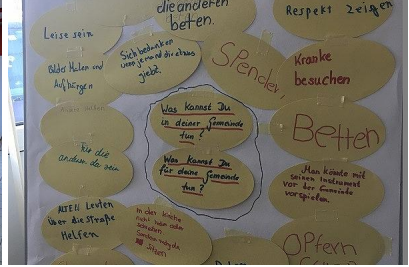 die anderen
beten.
Respekt zeigen
Leise sein
Sich bedanken
wenn jemand die etwas
giebt.
Spenden,
Kranke
besuchen
Bilder Malen und
Aufhängen
Was kannst Du
in deiner Gemeinde
tun?
Was kannst Du
für deine Gemeinde
tun?
Betten
Für die
andern da sein
Man könnte mit
seinen Instrument
vor der Gemeinde
vorspielen.
ALTEN Leuten
über die Straße
Helfen
In der Kirche
nicht
sitzen
OPfern